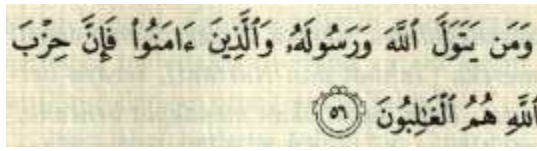 وَمَن يَتَوَلَّ ٱللَّهَ وَرَسُولَهُۥ وَٱلَّذِينَ ءَامَنُوا۟ فَإِنَّ حِزْبَ
ٱللَّهِ هُمُ ٱلْغَـٰلِبُونَ ٥٦